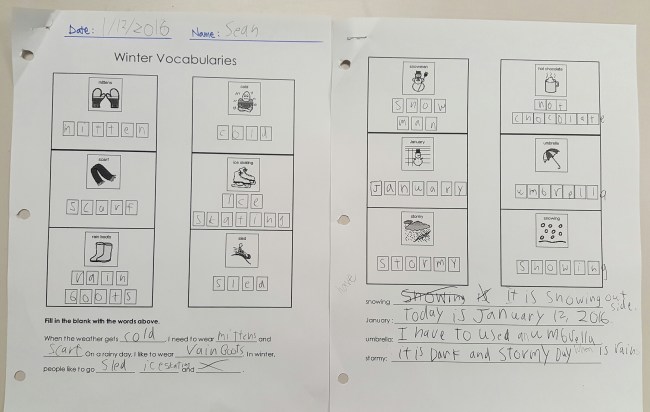 Date: 1/12/2016 Name: Sean
Winter Vocabularies
mittens
mitten
cold
cold
scarf
scarf
ice skating
ice
skating
rain boots
rain
boots
sled
sled
Fill in the blank with the words above.
When the weather gets cold I need to wear mittens and
scarf On a rainy day, I like to wear rain boots In winter,
people like to go sled iceskating and
snowman
snow
man
hot chocolate
hot
chocolate
January
January
umbrella
umbrella
stormy
stormy
snowing
snowing
snowing: Snowing It is snowing out
side.
January: today is January 12, 2016
umbrella: I have to used an umbrella
stormy: it is Dark and stormy Day is rain